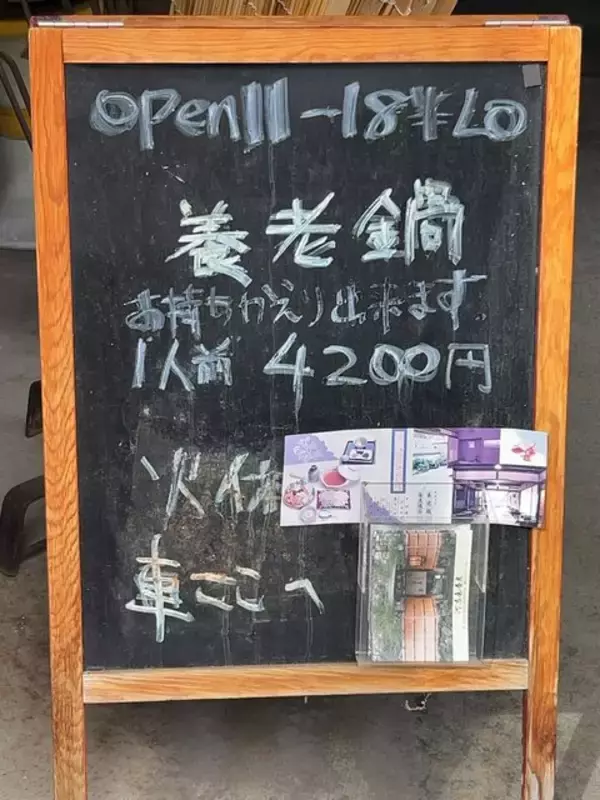 open 11-18半LO
養老鍋
お持ちかえり出来ます。
1人前 4200円
火休
車ここへ